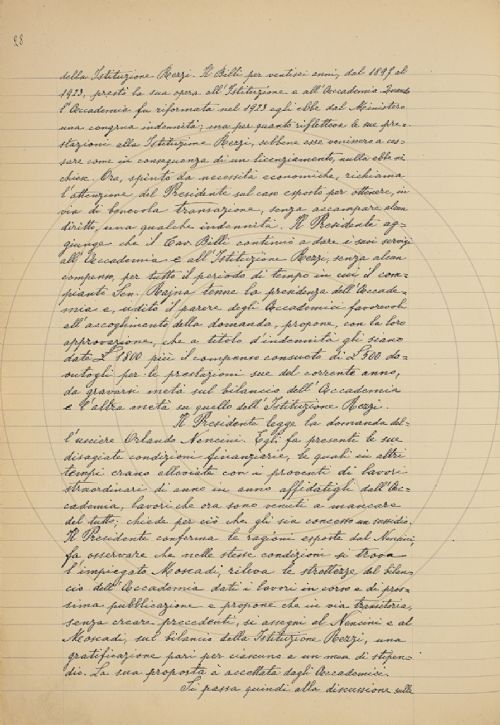 28
della Istituzione Rezzi. Il Billi per ventisei anni, dal 1897 al
1923, prestò la sua opera all'Istituzione e all'Accademia. Quando
l'Accademia fu riformata nel 1923 egli ebbe dal Ministero
una congrua indennità; ma per quanto riflettesse le sue pre=
stazioni alla Istituzione Rezzi, sebbene esse venissero a ces=
sare come in conseguenza di un licenziamento, nulla ebbe nè
chiese. Ora, spinto da necessità economiche, richiama
l'attenzione del Presidente sul caso esposto per ottenere, in
via di benevola transazione, senza accampare alcun
diritto, una qualche indennità. Il Presidente ag=
giunge che il Cav. Billi continuò a dare i suoi servizi
all'Accademia e all'Istituzione Rezzi, senza alcun
compenso, per tutto il periodo di tempo in cui il com=
pianto Sen. Rajna tenne la presidenza dell'Accade=
mia e, udito il parere degli Accademici favorevoli
all'accoglimento della domanda, propone, con la loro
approvazione, che a titolo d'indennità gli siano
date £ 1800 più il compenso consueto di £ 500 do=
vutogli per le prestazioni sue del corrente anno,
da gravarsi metà sul bilancio dell'Accademia
e l'altra metà su quello dell'Istituzione Rezzi.
Il Presidente legge la domanda del=
l'usciere Orlando Nencini. Egli fa presenti le sue
disagiate condizioni finanziarie, le quali in altri
tempi erano alleviate con i proventi di lavori
straordinari di anno in anno affidatigli dall'Ac=
cademia, lavori che ora sono venuti a mancare
del tutto; chiede per ciò che gli sia concesso un sussidio.
Il Presidente conferma le ragioni esposte dal Nencini,
fa osservare che nelle stesse condizioni si trova
l'impiegato Moscadi, rileva le strettezze del bilan=
cio dell'Accademia dati i lavori in corso e di pros=
sima pubblicazione e propone che in via transitoria,
senza creare precedenti, si assegni al Nencini e al
Moscadi, sul bilancio della Istituzione Rezzi, una
gratificazione pari per ciascuno a un mese di stipen=
dio. La sua proposta è accettata dagli Accademici.
Si passa quindi alla discussione sulla